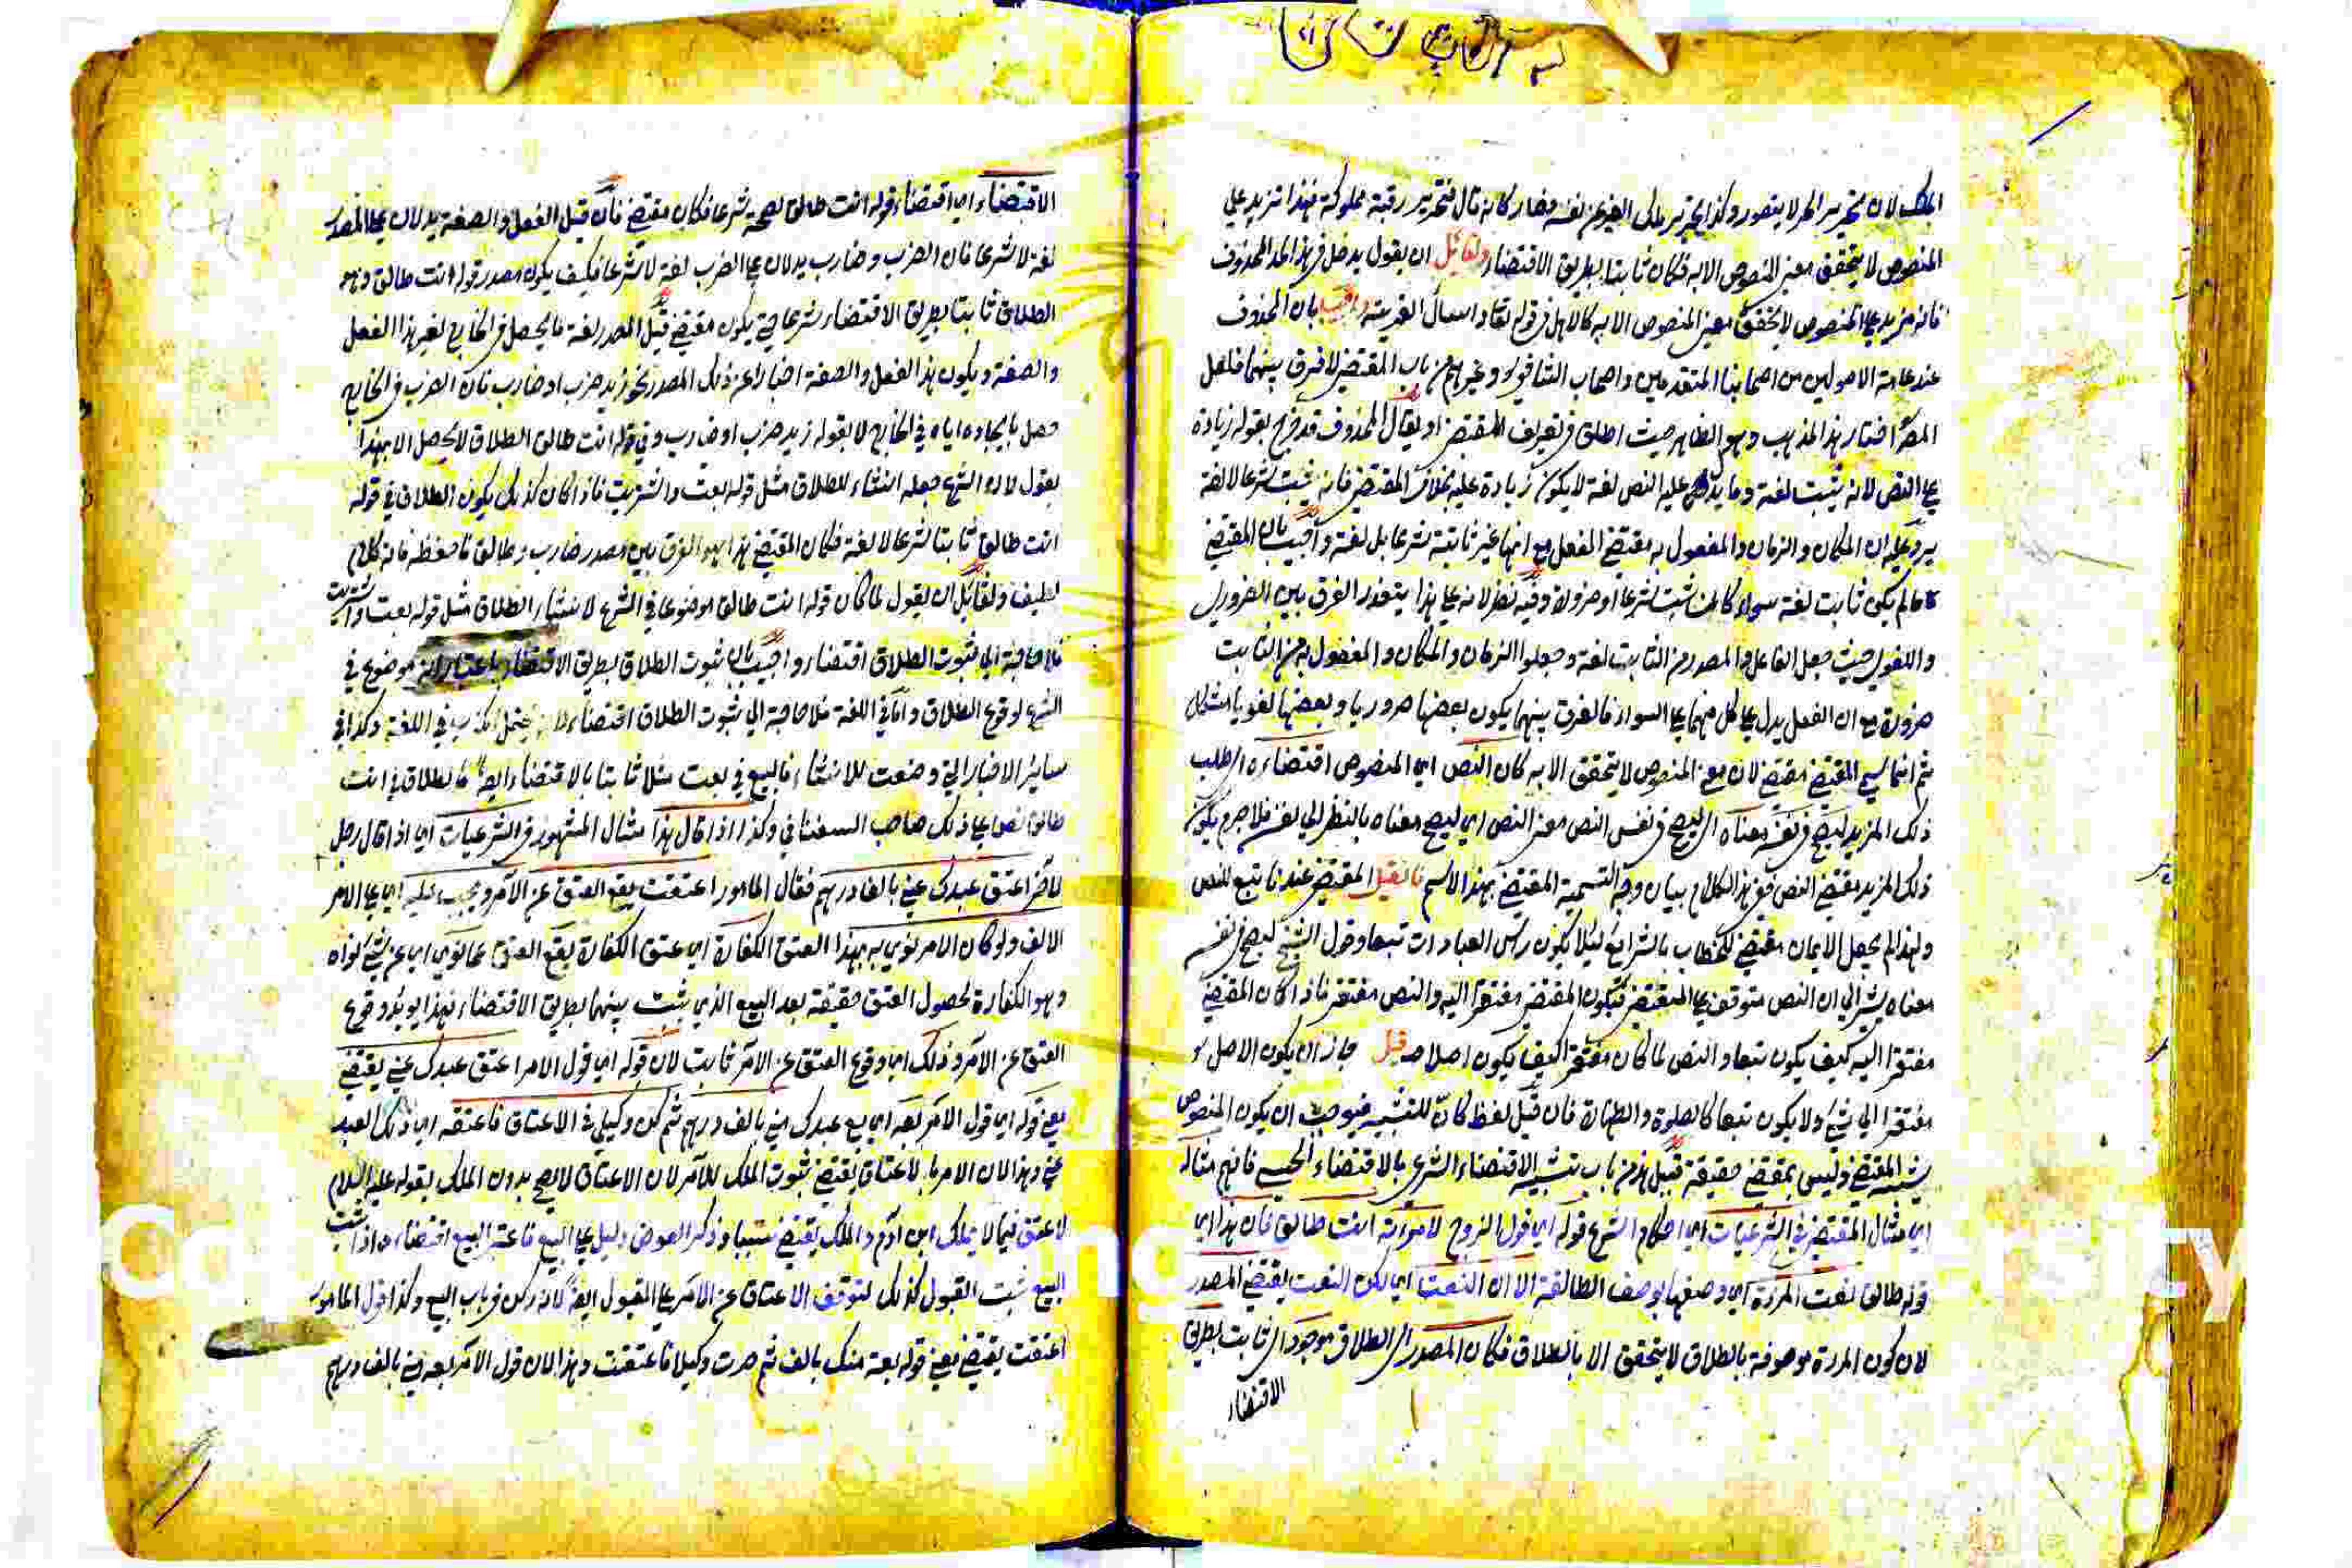 الملك لان تحرير الحر لا يتصور وكذا تحرير ملك الغير عن نفسه فصار كانه قال فتحرير رقبة مملوكة فهذا تزيد على
المنصوص لا يتحقق معنى المنصوص الا به فكان ثابتا بطريق الاقتضاء ولقائل ان يقول يدخل في هذا الحد المحذوف
فانه مزيد على المنصوص لا يتحقق معنى المنصوص الا به كالاهل في قوله تعالى واسأل القرية واجيب بان المحذوف
عند عامة الاصوليين من اصحابنا المتقدمين واصحاب الشافعي وغيرهم من باب المقتضى لا فرق بينهما فلعل
المص اختار هذا المذهب وهو الظاهر حيث اطلق في تعريف المقتضى او يقال المحذوف قد خرج بقوله زيادة
على النص لانه يثبت لغة وما يدل عليه النص لغة لا يكون زيادة عليه بخلاف المقتضى فانه يثبت شرعا لا لغة
يرد عليه ان المكان والزمان والمفعول به مقتضى الفعل مع انها غير ثابتة شرعا بل لغة واجيب بان المقتضى
ما لم يكن ثابت لغة سواء كان يثبت شرعا او ضرورة وفيه نظر لانه على هذا يتعذر الفرق بين الضروري
واللغوي حيث جعل الفاعل والمصدر من الثابت لغة وجعلوا الزمان والمكان والمفعول به من الثابت
ضرورة مع ان الفعل يدل على كل منهما على السواء فالفرق بينهما يكون بعضها ضروريا وبعضها لغويا مشكل
ثم انما سمي المقتضى مقتضى لان معنى المنصوص لا يتحقق الا به كان النص اي المنصوص اقتضاه اي طلب
ذلك المزيد ليصح في نفسه معناه اي ليصح في نفس النص معنى النص اي ليصح معناه بالنظر الى نفسه فلا جرم يكون
ذلك المزيد مقتضى النص ففي هذا الكلام بيان وجه التسمية المقتضى بهذا الاسم فان قيل المقتضى عندنا تبع للنص
ولهذا لم يجعل الايمان مقتضى الخطاب بالشرايع لئلا يكون راس العبادات تبعا وقول الشيخ ليصح في نفسه
معناه يشير الى ان النص متوقف على المقتضى فيكون المقتضى مفتقرا اليه والنص مفتقر فاذا كان المقتضى
مفتقرا اليه كيف يكون تبعا والنص لما كان مفتقرا كيف يكون اصلا قيل جاز ان يكون الاصل
مفتقرا الى شيء ولا يكون تبعا كالصلوة والطهارة فان قيل لفظ كان للتشبيه فيوجب ان يكون المنصوص
يشبه المقتضى وليس بمقتضى حقيقة قيل هذا من باب تشبيه الاقتضاء الشرعي بالاقتضاء الحسي فافهم مثاله
اي مثال المقتضى في الشرعيات اي احكام الشرع قوله اي قول الزوج لامرءته انت طالق فان هذا اي
قوله طالق نعت المرءة اي وصفها بوصف الطالقة الا ان النعت اي لكن النعت يقتضي المصدر
لان كون المرءة موصوفة بالطلاق لا يتحقق الا بالطلاق فكان المصدر اي الطلاق موجودا اي ثابت بطريق
الاقتضاء
الاقتضاء اي اقتضاء قوله انت طالق لصحته شرعا فكان مقتضى فان قيل الفعل والصفة يدلان على المصدر
لغة لا شرعا فان الضرب وضارب يدلان على الضرب لغة لا شرعا فكيف يكون مصدر قوله انت طالق وهو
الطلاق ثابتا بطريق الاقتضاء شرعا حتى يكون مقتضى قيل المصدر لغة ما يحصل في الخارج لغير هذا الفعل
والصفة ويكون هذا الفعل والصفة اخبارا عن ذلك المصدر نحو زيد ضرب او ضارب فان الضرب في الخارج
حصل بايجاده اياه في الخارج لا بقوله زيد ضرب او ضارب وفي قوله انت طالق الطلاق لا يحصل الا بهذا
بقول لان الشرع جعله انشاء للطلاق مثل قوله بعت واشتريت فاذا كان كذلك يكون الطلاق في قوله
انت طالق ثابتا شرعا لا لغة فكان المقتضى هذا هو الفرق بين مصدر ضارب وطالق فاحفظه فانه كلام
لطيف ولقائل ان يقول لما كان قوله انت طالق موضوعا في الشرع لانشاء الطلاق مثل قوله بعت واشتريت
فلا حاجة الى ثبوت الطلاق اقتضاء واجيب بان ثبوت الطلاق بطريق الاقتضاء باعتبار انه موضوع في
الشرع لوقوع الطلاق واما في اللغة فلا حاجة الى ثبوت الطلاق اقتضاء لانه يحتمل الكذب في اللغة وكذا في
سائر الاخبار التي وضعت للانشاء فالبيع في بعت مثلا ثابتا بالاقتضاء ايضا كالطلاق في انت
طالق نص على ذلك صاحب السغناقي وكذا اذا قال هذا مثال المشهور في الشرعيات اي اذا قال رجل
لآخر اعتق عبدك عني بالف درهم فقال المامور اعتقت يقع العتق عن الآمر ويجب عليه اي على الامر
الالف ولو كان الامر نوى به بهذا العتق الكفارة اي عتق الكفارة يقع العتق عما نوى اي عن شيء نواه
وهو الكفارة لحصول العتق حقيقة بعد البيع الذي يثبت بينهما بطريق الاقتضاء فهذا يويد وقوع
العتق عن الآمر وذلك اي وقوع العتق عن الآمر ثابت لان قوله اي قول الامر اعتق عبدك عني يقتضي
يعني قوله اي قول الامر بعه اي بع عبدك مني بالف درهم ثم كن وكيلي في الاعتاق فاعتقه اي ذلك العبد
عني وهذا لان الامر بالاعتاق يقتضي ثبوت الملك للآمر لان الاعتاق لا يصح بدون الملك بقوله عليه السلام
لا عتق فيما لا يملك ابن آدم والملك يقتضي سببا وذكر العوض دليل على البيع فاعتبر البيع اقتضاء واذا ثبت
البيع ثبت القبول كذلك لتوقف الاعتاق عن الآمر على القبول ايضا لانه ركن في باب البيع وكذا قول المامور
اعتقت يقتضي يعني قوله بعته منك بالف ثم صرت وكيلا فاعتقت وهذا لان قول الآمر بعه مني بالف درهم